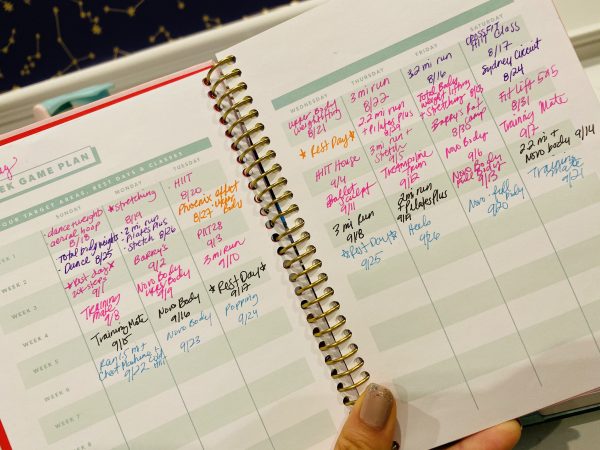 EK GAME PLAN
OUR TARGET AREAS, REST DAYS & CLASSES
SUNDAY
MONDAY
TUESDAY
WEDNESDAY
THURSDAY
FRIDAY
SATURDAY
WEEK 1
dance weights
aerial hoop
8/18
*Stretching
8/19
HIIT
8/20
upper Body
weightlifting
8/21
3 mi run
8/22
3.2 mi run
8/16
Crossfit
HIIT Class
8/17
WEEK 2
Total body weights
- Dance 8/25
- 2 mi run
- Pilates Plus
- Stretch 8/26
Phoenix effect
8/27 upper
Body
* Rest Day *
2.2 mi run
+ Pilates Plus
8/29
Total Body
weight lifting
+ Stretching
Sydney Circuit
8/24
WEEK 3
*rest day*
steps
9/1
Barry's
9/2
PIIT28
9/3
HIIT House
9/4
3 mi run +
Stretch
9/5
Barry's
camp
8/30
Fit Lift 5x5
8/31
WEEK 4
Training
Mate
9/8
Novo Body
9/9
3 mi run
9/10
Ballet
Sculpt
9/11
Trampoline
9/12
Novo Body
9/6
Training Mate
9/7
WEEK 5
Training Mate
9/15
Novo Body
9/16
*Rest Day*
9/17
3 mi Run
9/18
2 mi Run
+ Pilates Plus
9/19
Novo Body
2.2 mi +
Novo body 9/14
WEEK 6
9/22
Novo Body
9/23
Popping
9/24
*Rest Day*
9/25
9/26
Novo full
Body
9/20
Training
Mate
9/21
WEEK 7
WEEK 8